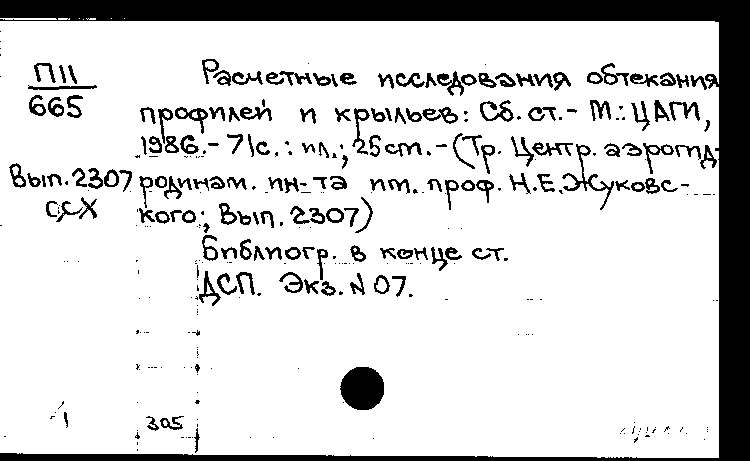 П11
665
Расчетные исследования обтекания
профилей и крыльев: Сб. ст. - М.: ЦАГИ,
1986. - 71с.: ил.; 25cm. - (Тр. Центр. аэрогид-
Вып. 2307 родинам. ин-та им. проф. Н.Е.Жуковс-
ССХ кого; Вып. 2307)
Библиогр. в конце ст.
ДСП. Экз. N 07.
1 305